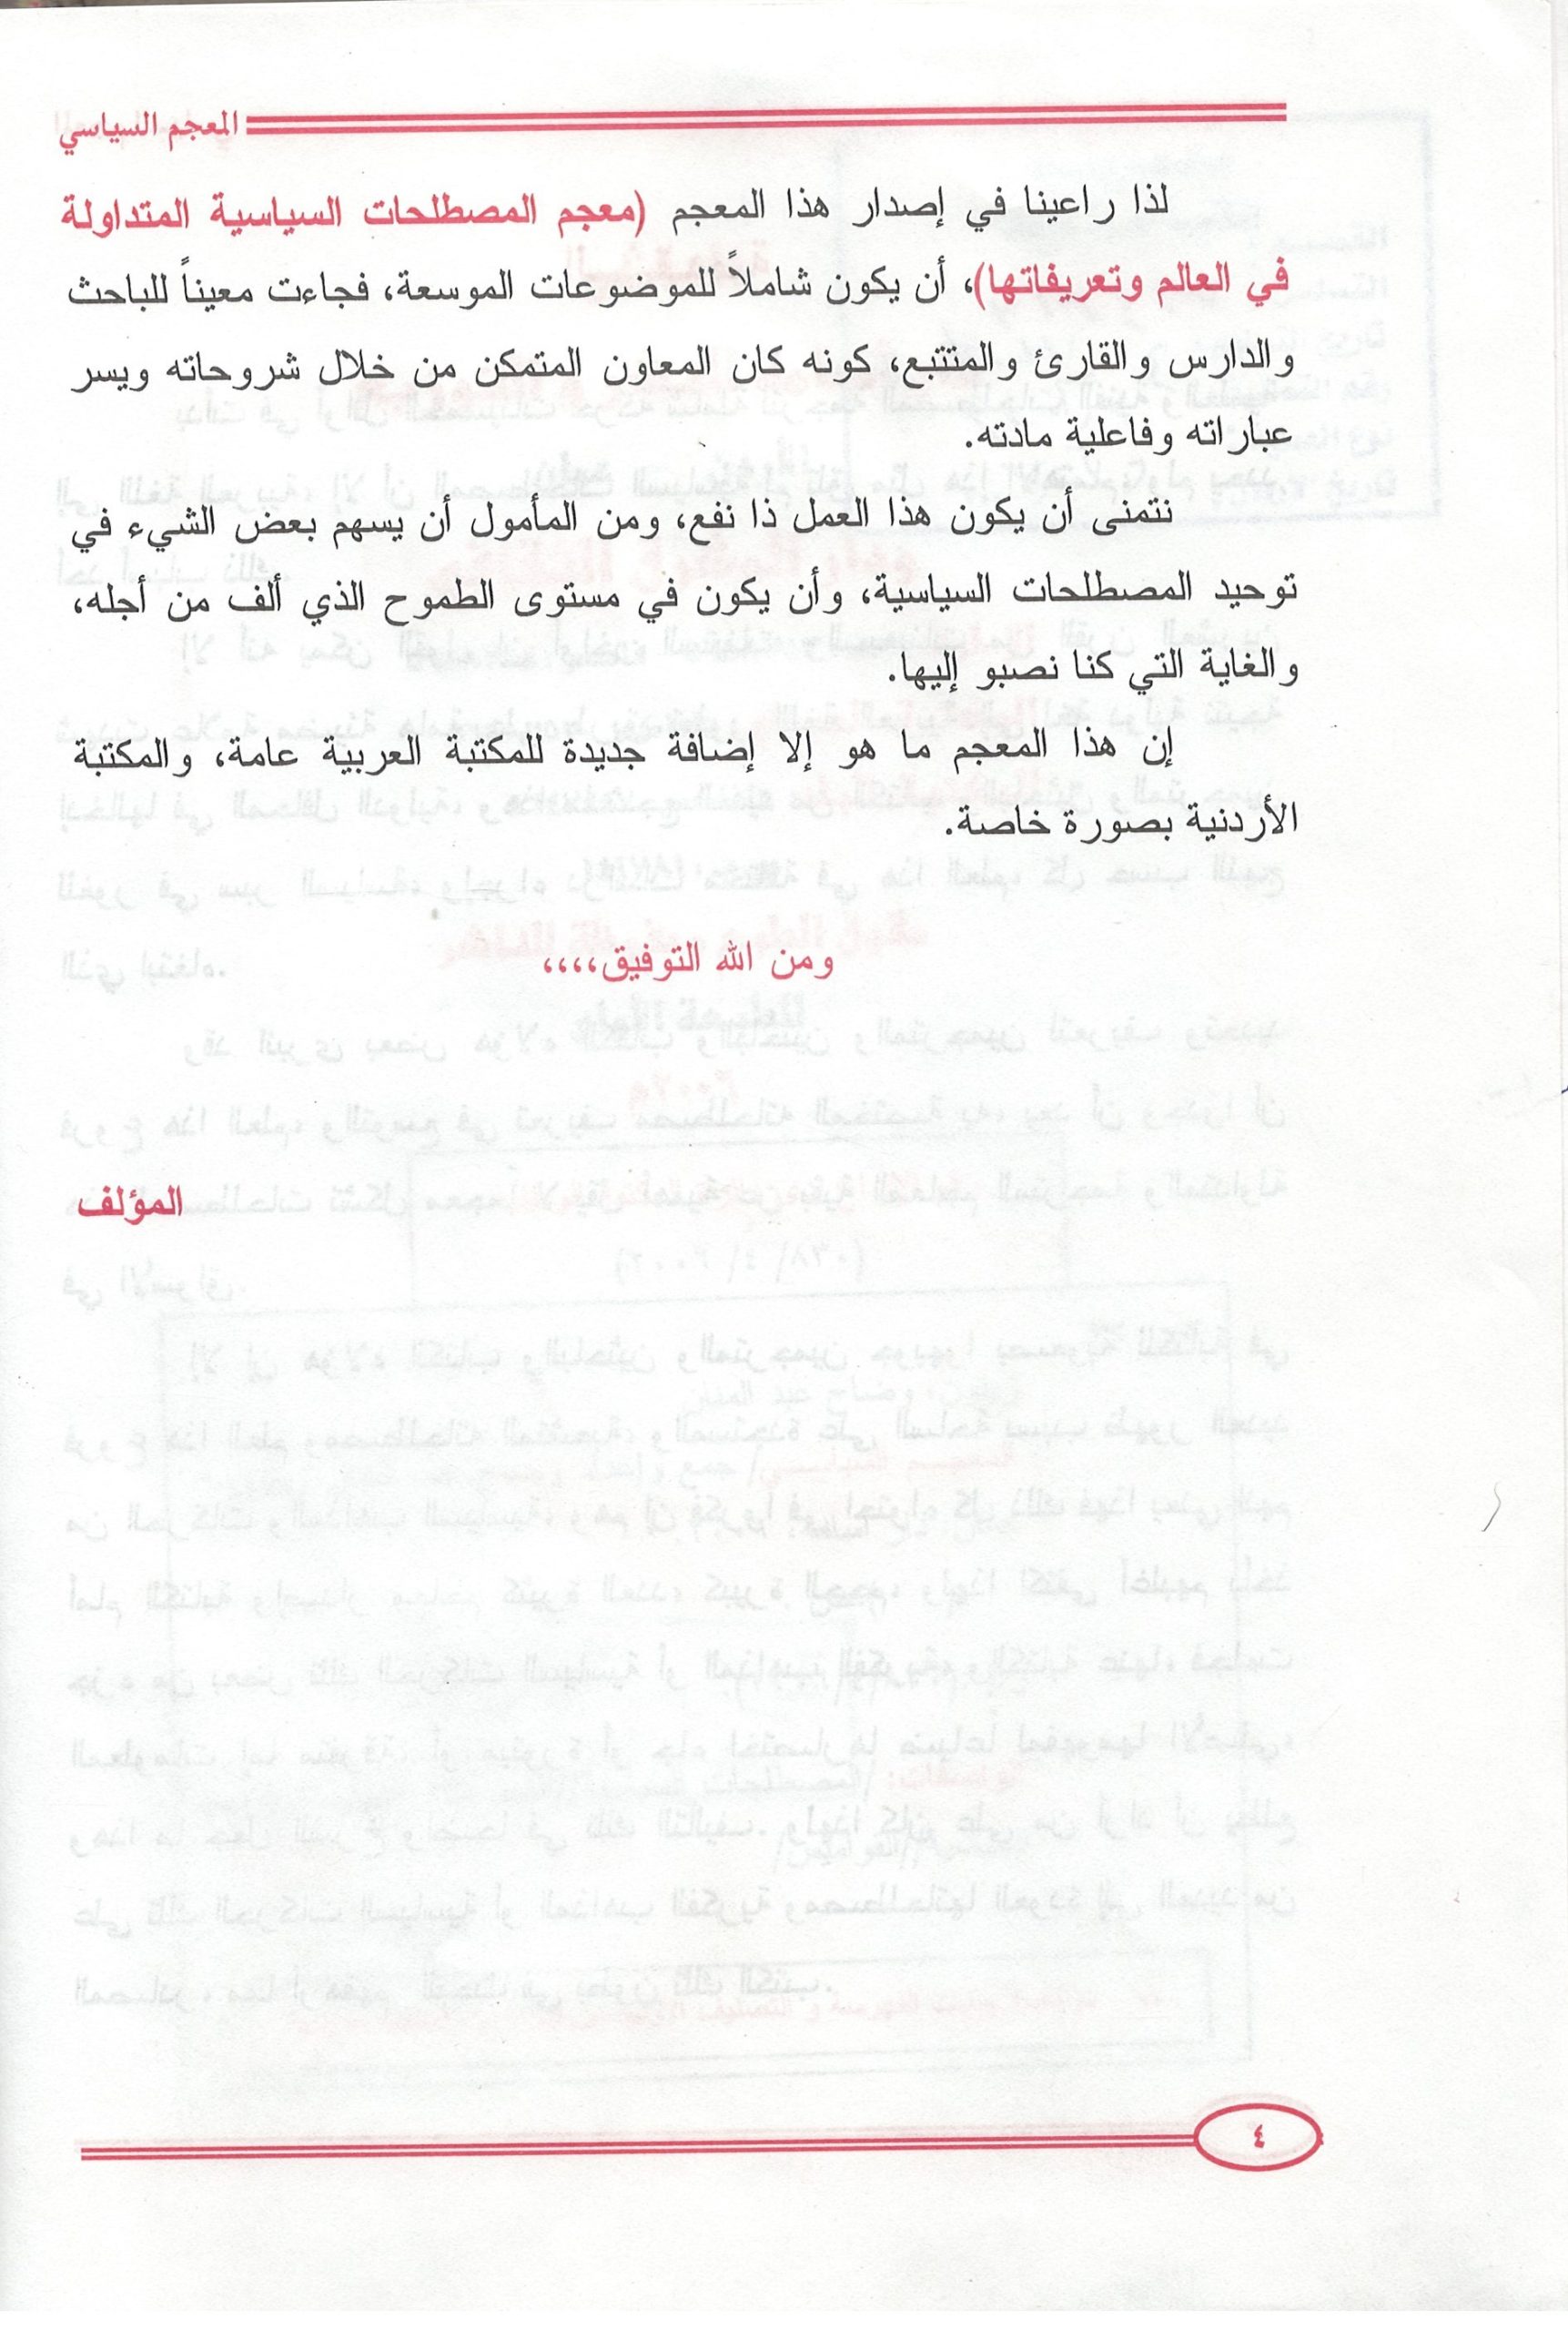 المعجم السياسي
لذا راعينا في إصدار هذا المعجم (معجم المصطلحات السياسية المتداولة
في العالم وتعريفاتها)، أن يكون شاملاً للموضوعات الموسعة، فجاءت معيناً للباحث
والدارس والقارئ والمتتبع، كونه كان المعاون المتمكن من خلال شروحاته ويسر
عباراته وفاعلية مادته.
نتمنى أن يكون هذا العمل ذا نفع، ومن المأمول أن يسهم بعض الشيء في
توحيد المصطلحات السياسية، وأن يكون في مستوى الطموح الذي ألف من أجله،
والغاية التي كنا نصبو إليها.
إن هذا المعجم ما هو إلا إضافة جديدة للمكتبة العربية عامة، والمكتبة
الأردنية بصورة خاصة.
ومن الله التوفيق،،،،
المؤلف
٤